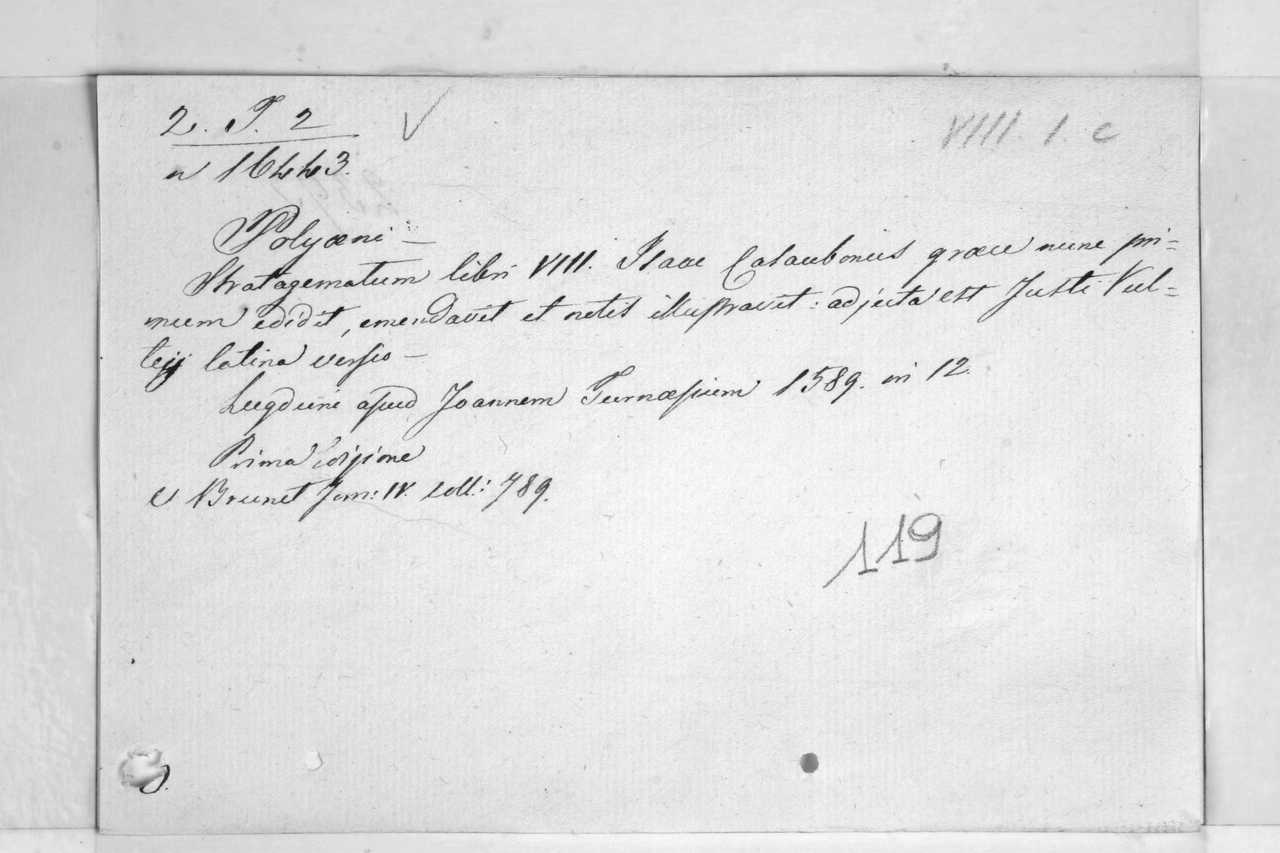 2. T. 2
VIII. 1. c
n 16443.
Polyæni —
Stratagematum libri VIII. Isaac Casaubonus græce nunc pri=
mum edidit, emendavit et notis illustravit: adjecta est Justi Vul=
teji latina versio —
Lugduni apud Joannem Turnæsium 1589. in 12.
Prima edizione
V Brunet Tom: IV. coll.: 789.
119